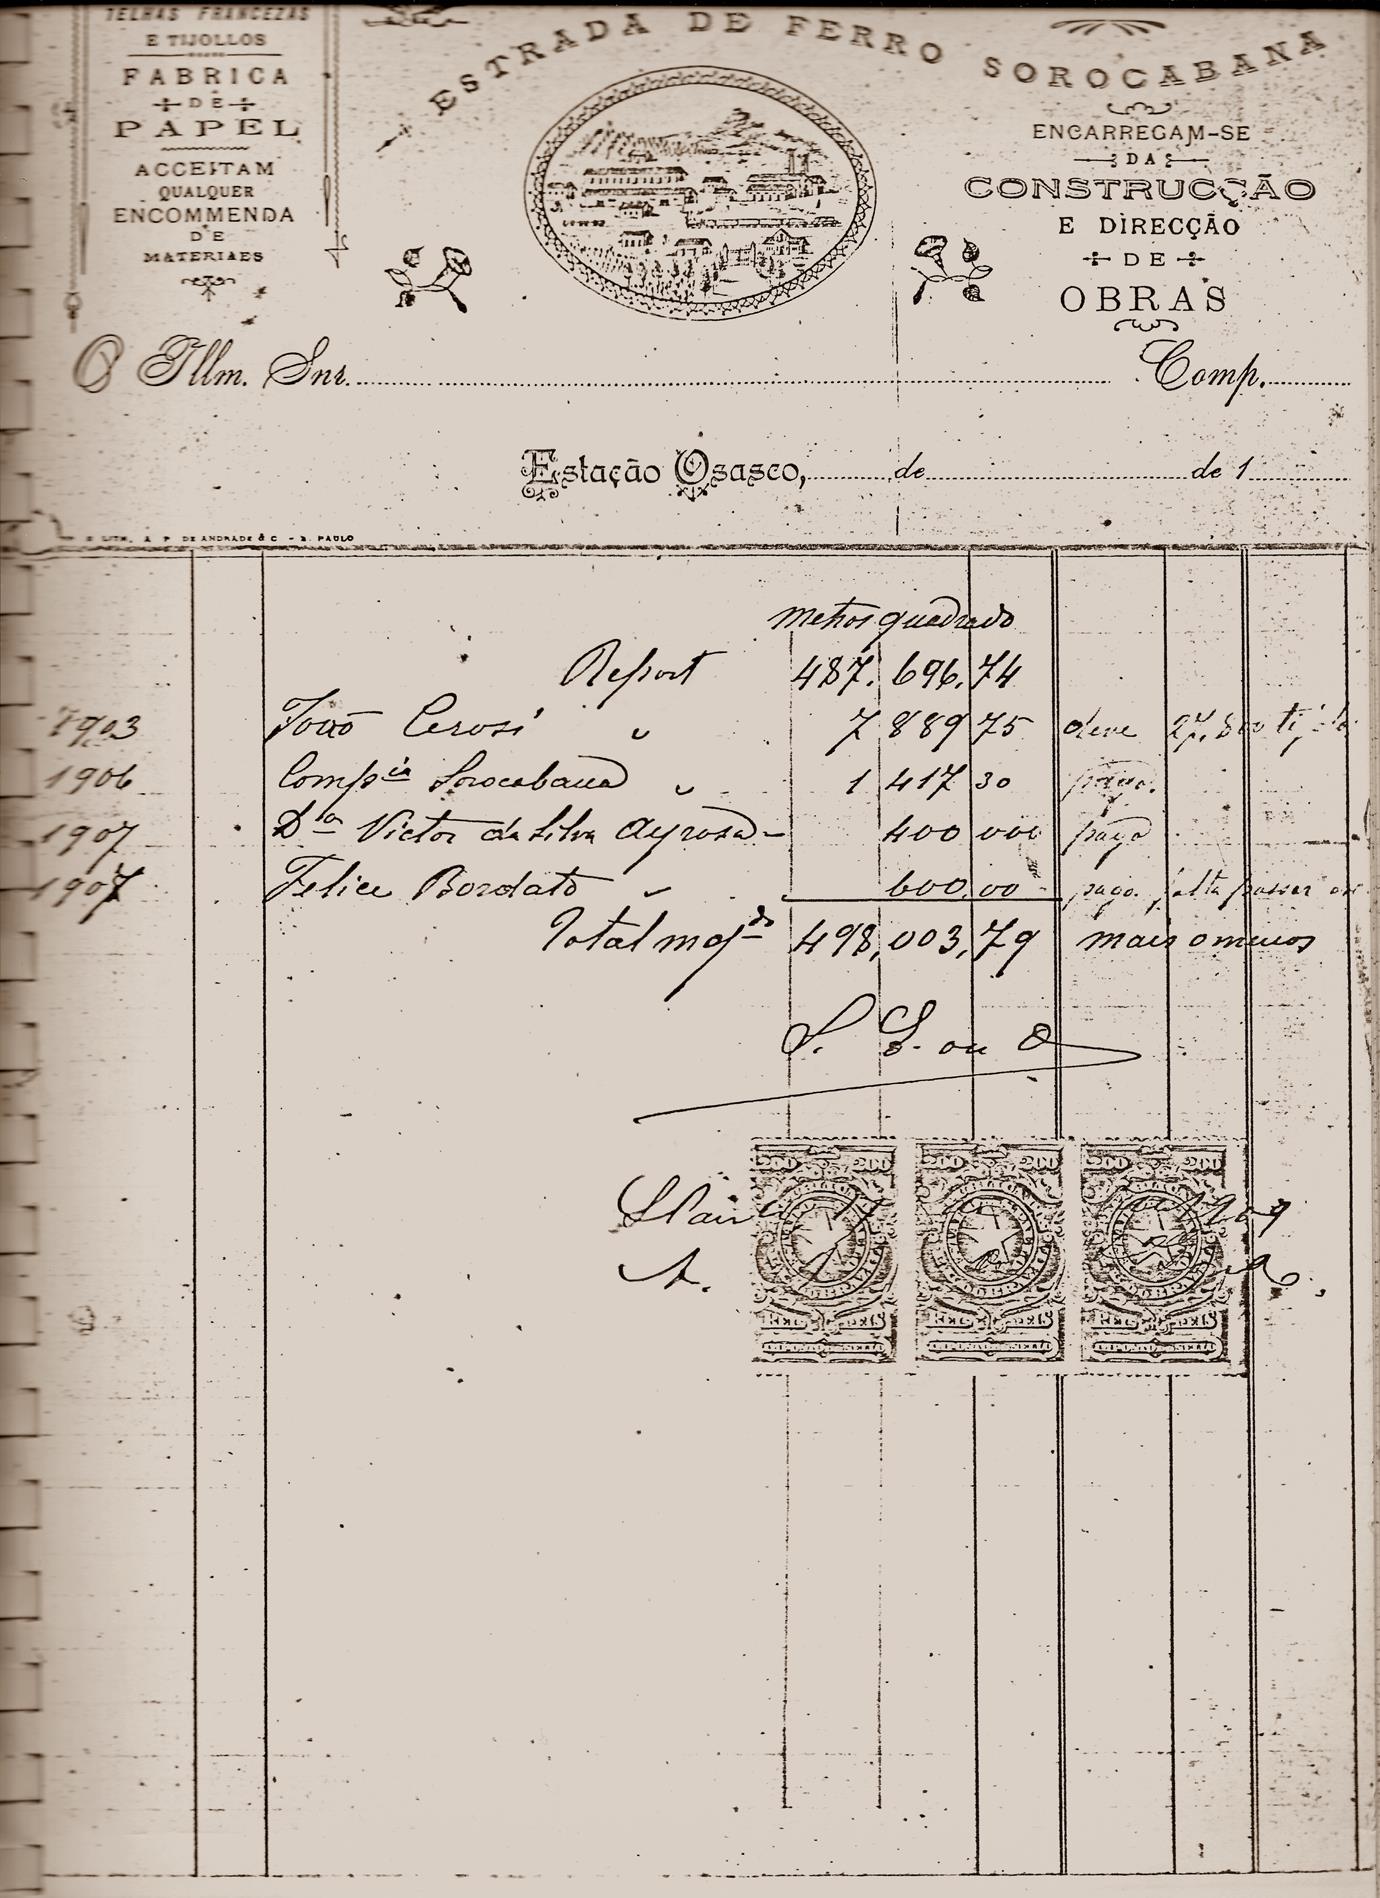 TELHAS FRANCEZAS
E TIJOLLOS
FABRICA
DE
PAPEL
ACCEITAM
QUALQUER
ENCOMMENDA
DE
MATERIAES
ESTRADA DE FERRO SOROCABANA
ENCARREGAM-SE
DA
CONSTRUCÇÃO
E DIRECÇÃO
DE
OBRAS
O Illm. Snr. Comp.
Estação Osasco, de de 1
LITH. A P DE ANDRADE & C - S. PAULO
metros quadrado
Report 487.696.74
1903 João Cerosi " 7 889 75 deve 27.800
1906 Compia Sorocabana " 1 417 30 pago.
1907 Victor da Silva Ayrosa - 400 000 pago
1907 Felice Bordato " 600.00 - pago falta passar
Total mqdo 498,003,79 mais o menos
S. E. ou O
1909
A.
REIS REIS REIS